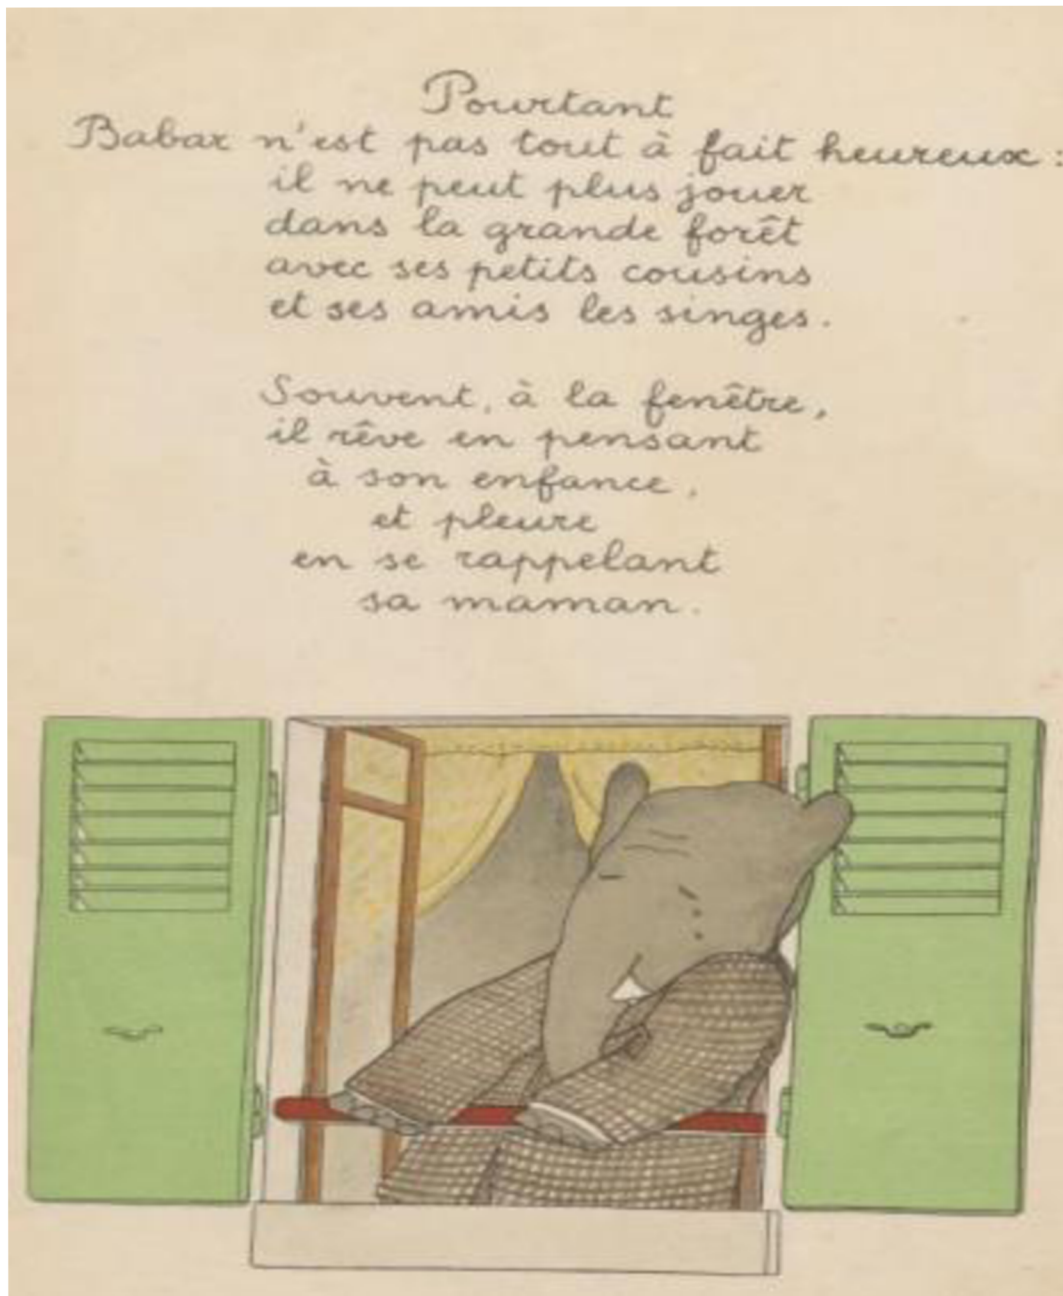 Pourtant
Babar n'est pas tout à fait heureux :
il ne peut plus jouer
dans la grande forêt
avec ses petits cousins
et ses amis les singes.
Souvent, à la fenêtre,
il rêve en pensant
à son enfance,
et pleure
en se rappelant
sa maman.